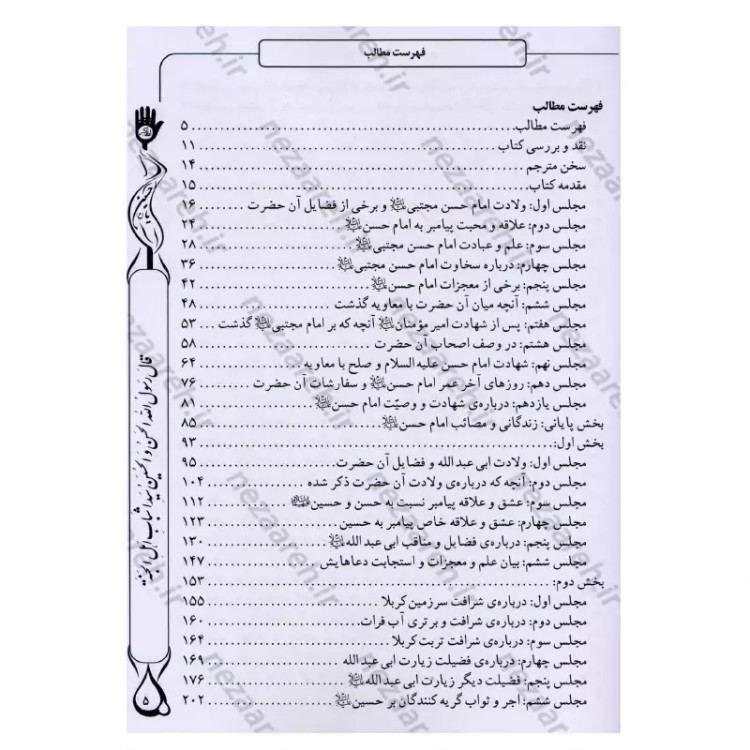 فهرست مطالب
فهرست مطالب
فهرست مطالب ... ۵
نقد و بررسی کتاب ... ۱۱
سخن مترجم ... ۱۴
مقدمه کتاب ... ۱۵
مجلس اول: ولادت امام حسن مجتبی و برخی از فضایل آن حضرت ... ۱۶
مجلس دوم: علاقه و محبت پیامبر به امام حسن ... ۲۴
مجلس سوم: علم و عبادت امام حسن مجتبی ... ۲۸
مجلس چهارم: درباره سخاوت امام حسن مجتبی ... ۳۶
مجلس پنجم: برخی از معجزات امام حسن ... ۴۲
مجلس ششم: آنچه میان آن حضرت با معاویه گذشت ... ۴۸
مجلس هفتم: پس از شهادت امیر مؤمنان آنچه که بر امام مجتبی گذشت ... ۵۳
مجلس هشتم: در وصف اصحاب آن حضرت ... ۵۸
مجلس نهم: شهادت امام حسن علیه السلام و صلح با معاویه ... ۶۴
مجلس دهم: روزهای آخر عمر امام حسن و سفارشات آن حضرت ... ۷۶
مجلس یازدهم: درباره‌ی شهادت و وصیّت امام حسن ... ۸۱
بخش پایانی: زندگانی و مصائب امام حسن ... ۸۵
بخش اول: ... ۹۳
مجلس اول: ولادت ابی عبدالله و فضایل آن حضرت ... ۹۵
مجلس دوم: آنچه که درباره‌ی ولادت آن حضرت ذکر شده ... ۱۰۴
مجلس سوم: عشق و علاقه پیامبر نسبت به حسن و حسین ... ۱۱۲
مجلس چهارم: عشق و علاقه خاص پیامبر به حسین ... ۱۲۳
مجلس پنجم: درباره‌ی فضایل و مناقب ابی عبدالله ... ۱۳۰
مجلس ششم: بیان علم و معجزات و استجابت دعاهایش ... ۱۴۷
بخش دوم: ... ۱۵۳
مجلس اول: درباره‌ی شرافت سرزمین کربلا ... ۱۵۵
مجلس دوم: درباره‌ی شرافت و برتری آب فرات ... ۱۶۰
مجلس سوم: درباره‌ی شرافت تربت کربلا ... ۱۶۴
مجلس چهارم: درباره‌ی فضیلت زیارت ابی عبدالله ... ۱۶۹
مجلس پنجم: فضیلت دیگر زیارت ابی عبدالله ... ۱۷۶
مجلس ششم: اجر و ثواب گریه کنندگان بر حسین ... ۲۰۲
قال رسول الله الحسن و الحسین سیدا شباب اهل الجنة
۵
nezaareh.ir